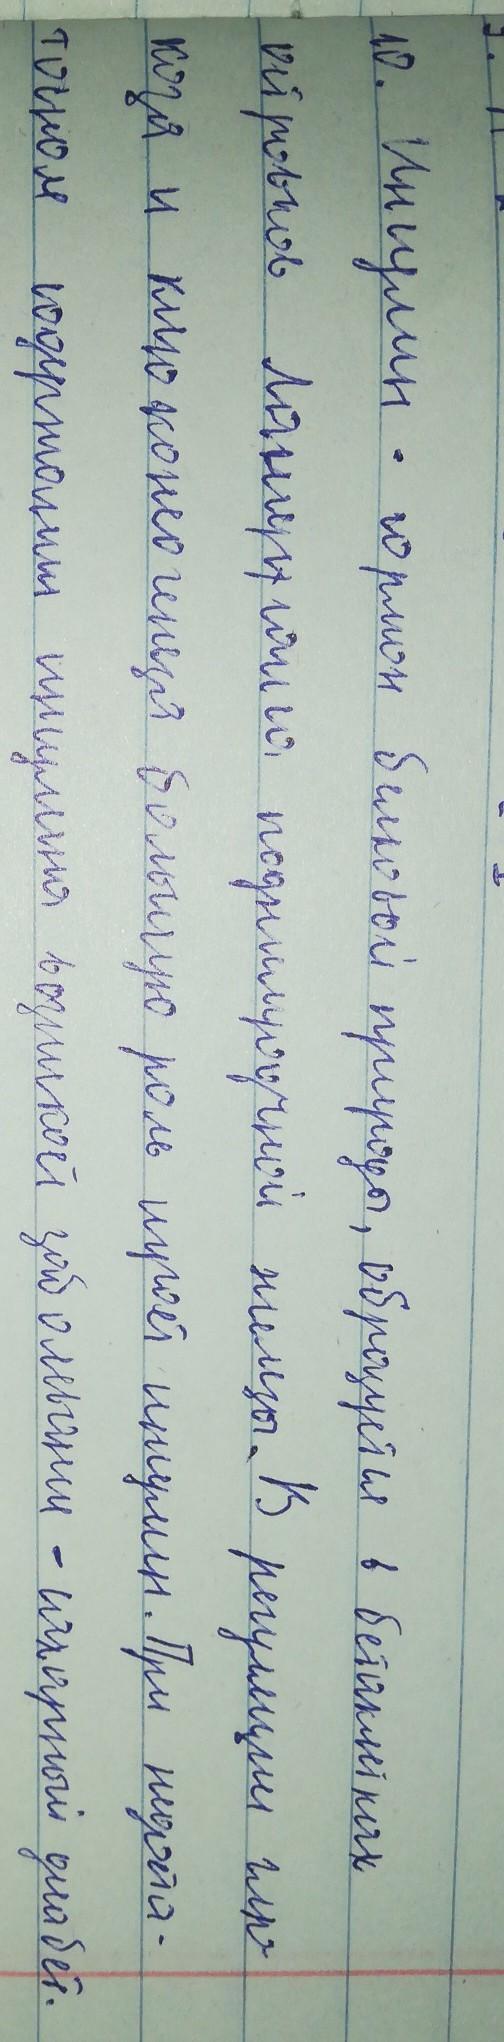 10. Инсулин - гормон белковой природы, образуется в бетаклетках
островков Лангерганса поджелудочной железы. В регуляции глю
коза и глюконеогенеза большую роль играет инсулин. При недоста-
точном содержании инсулина возникает заболевание - сахарный диабет.